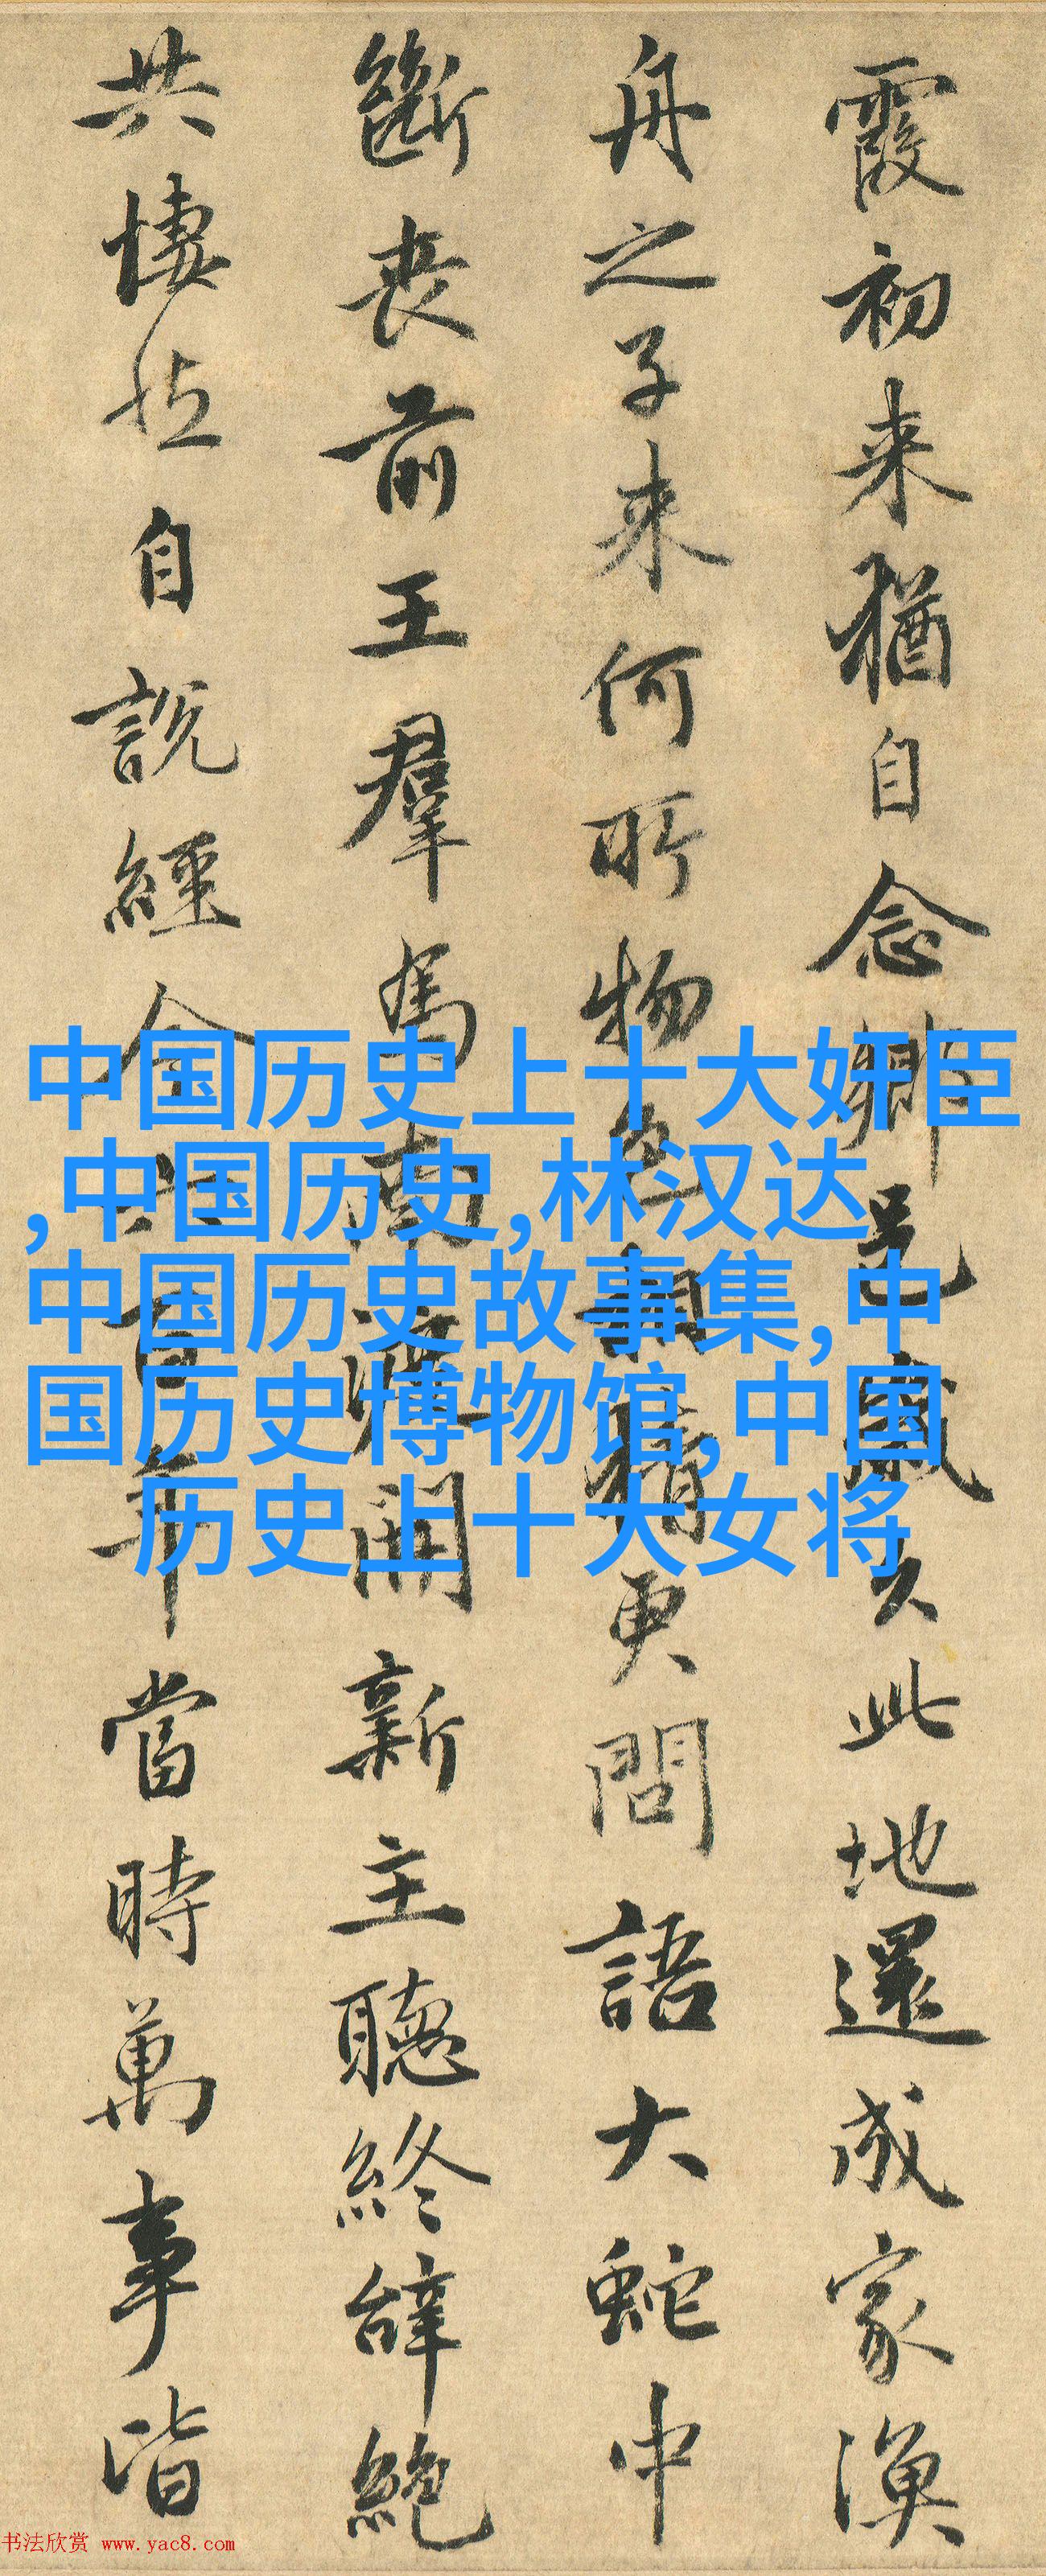 霞初来猶自念鄉邑歲久此地還成家漁
舟之子来何所物色相猜更問語大蛇中
斷喪前王羣馬南渡開新主聽終辭絕
共悽然自説經今六百年當時萬事皆
中国历史上十大奸臣
,中国历史,林汉达
中国历史故事集,中
国历史博物馆,中国
历史上十大女将
书法欣赏 www.yac8.com